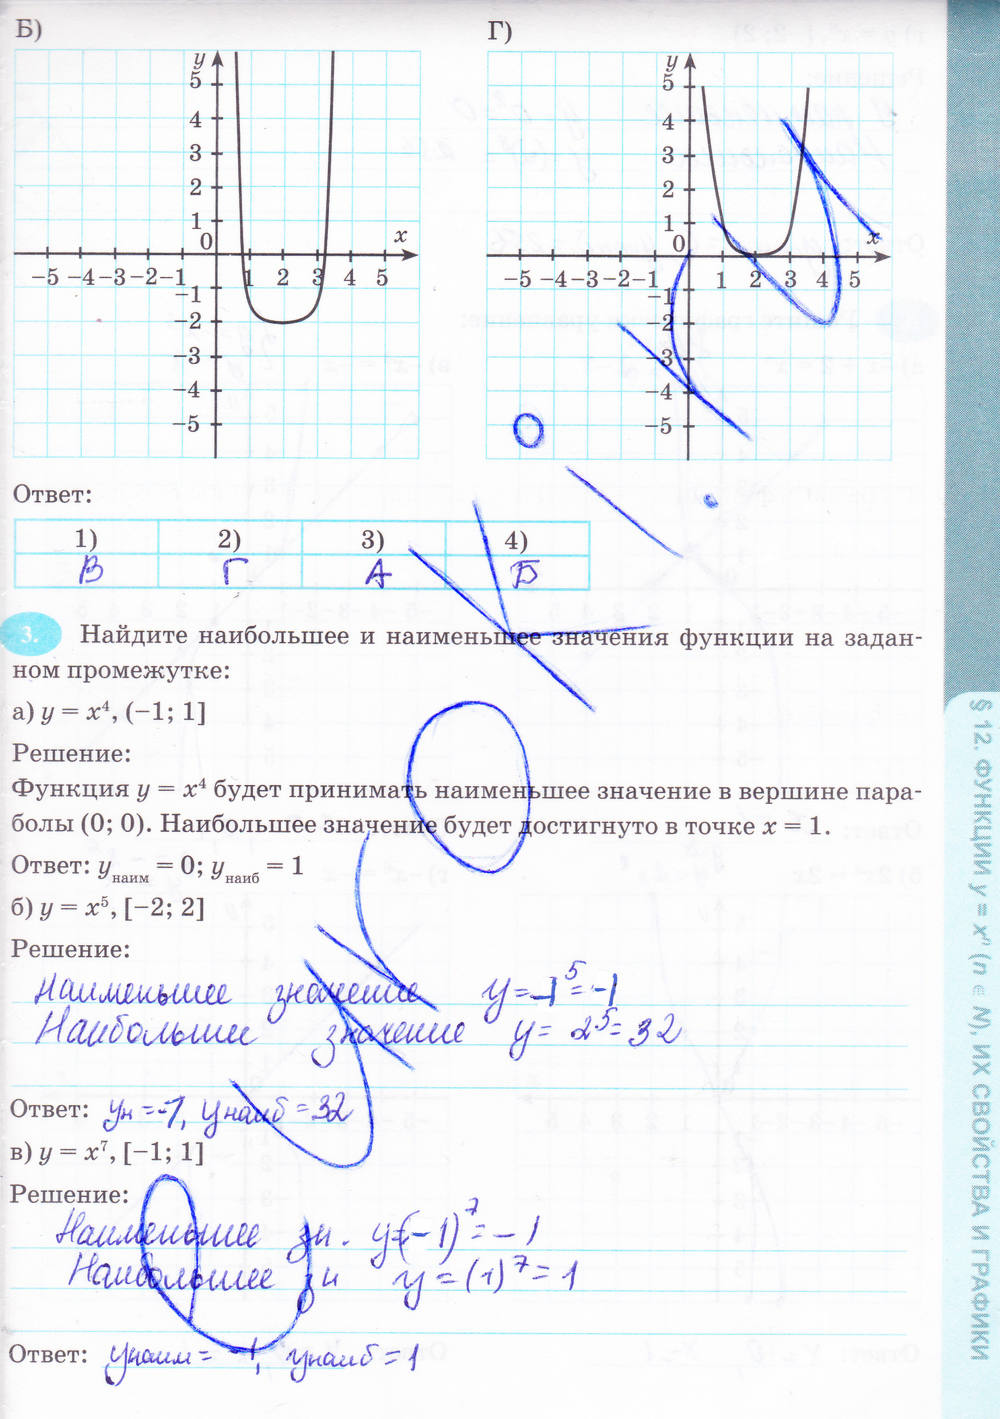 Б)
Г)
y
5
4
3
2
1
0
x
−5 −4 −3 −2 −1
1 2 3 4 5
−1
−2
−3
−4
−5
y
5
4
3
2
1
0
x
−5 −4 −3 −2 −1
1 2 3 4 5
−1
−2
−3
−4
−5
Ответ:
1) 2) 3) 4)
В Г А Б
3. Найдите наибольшее и наименьшее значения функции на задан-
ном промежутке:
а) y = x⁴, (−1; 1]
Решение:
Функция y = x⁴ будет принимать наименьшее значение в вершине пара-
болы (0; 0). Наибольшее значение будет достигнуто в точке x = 1.
Ответ: yнаим = 0; yнаиб = 1
б) y = x⁵, [−2; 2]
Решение:
Наименьшее значение y = −1⁵ = −1
Наибольшее значение y = 2⁵ = 32
Ответ: yн = −1, yнаиб = 32
в) y = x⁷, [−1; 1]
Решение:
Наименьшее зн. y = (−1)⁷ = −1
Наибольшее зн y = (1)⁷ = 1
Ответ: yнаим = −1, yнаиб = 1
§ 12. ФУНКЦИИ y = xⁿ (n ∈ N), ИХ СВОЙСТВА И ГРАФИКИ